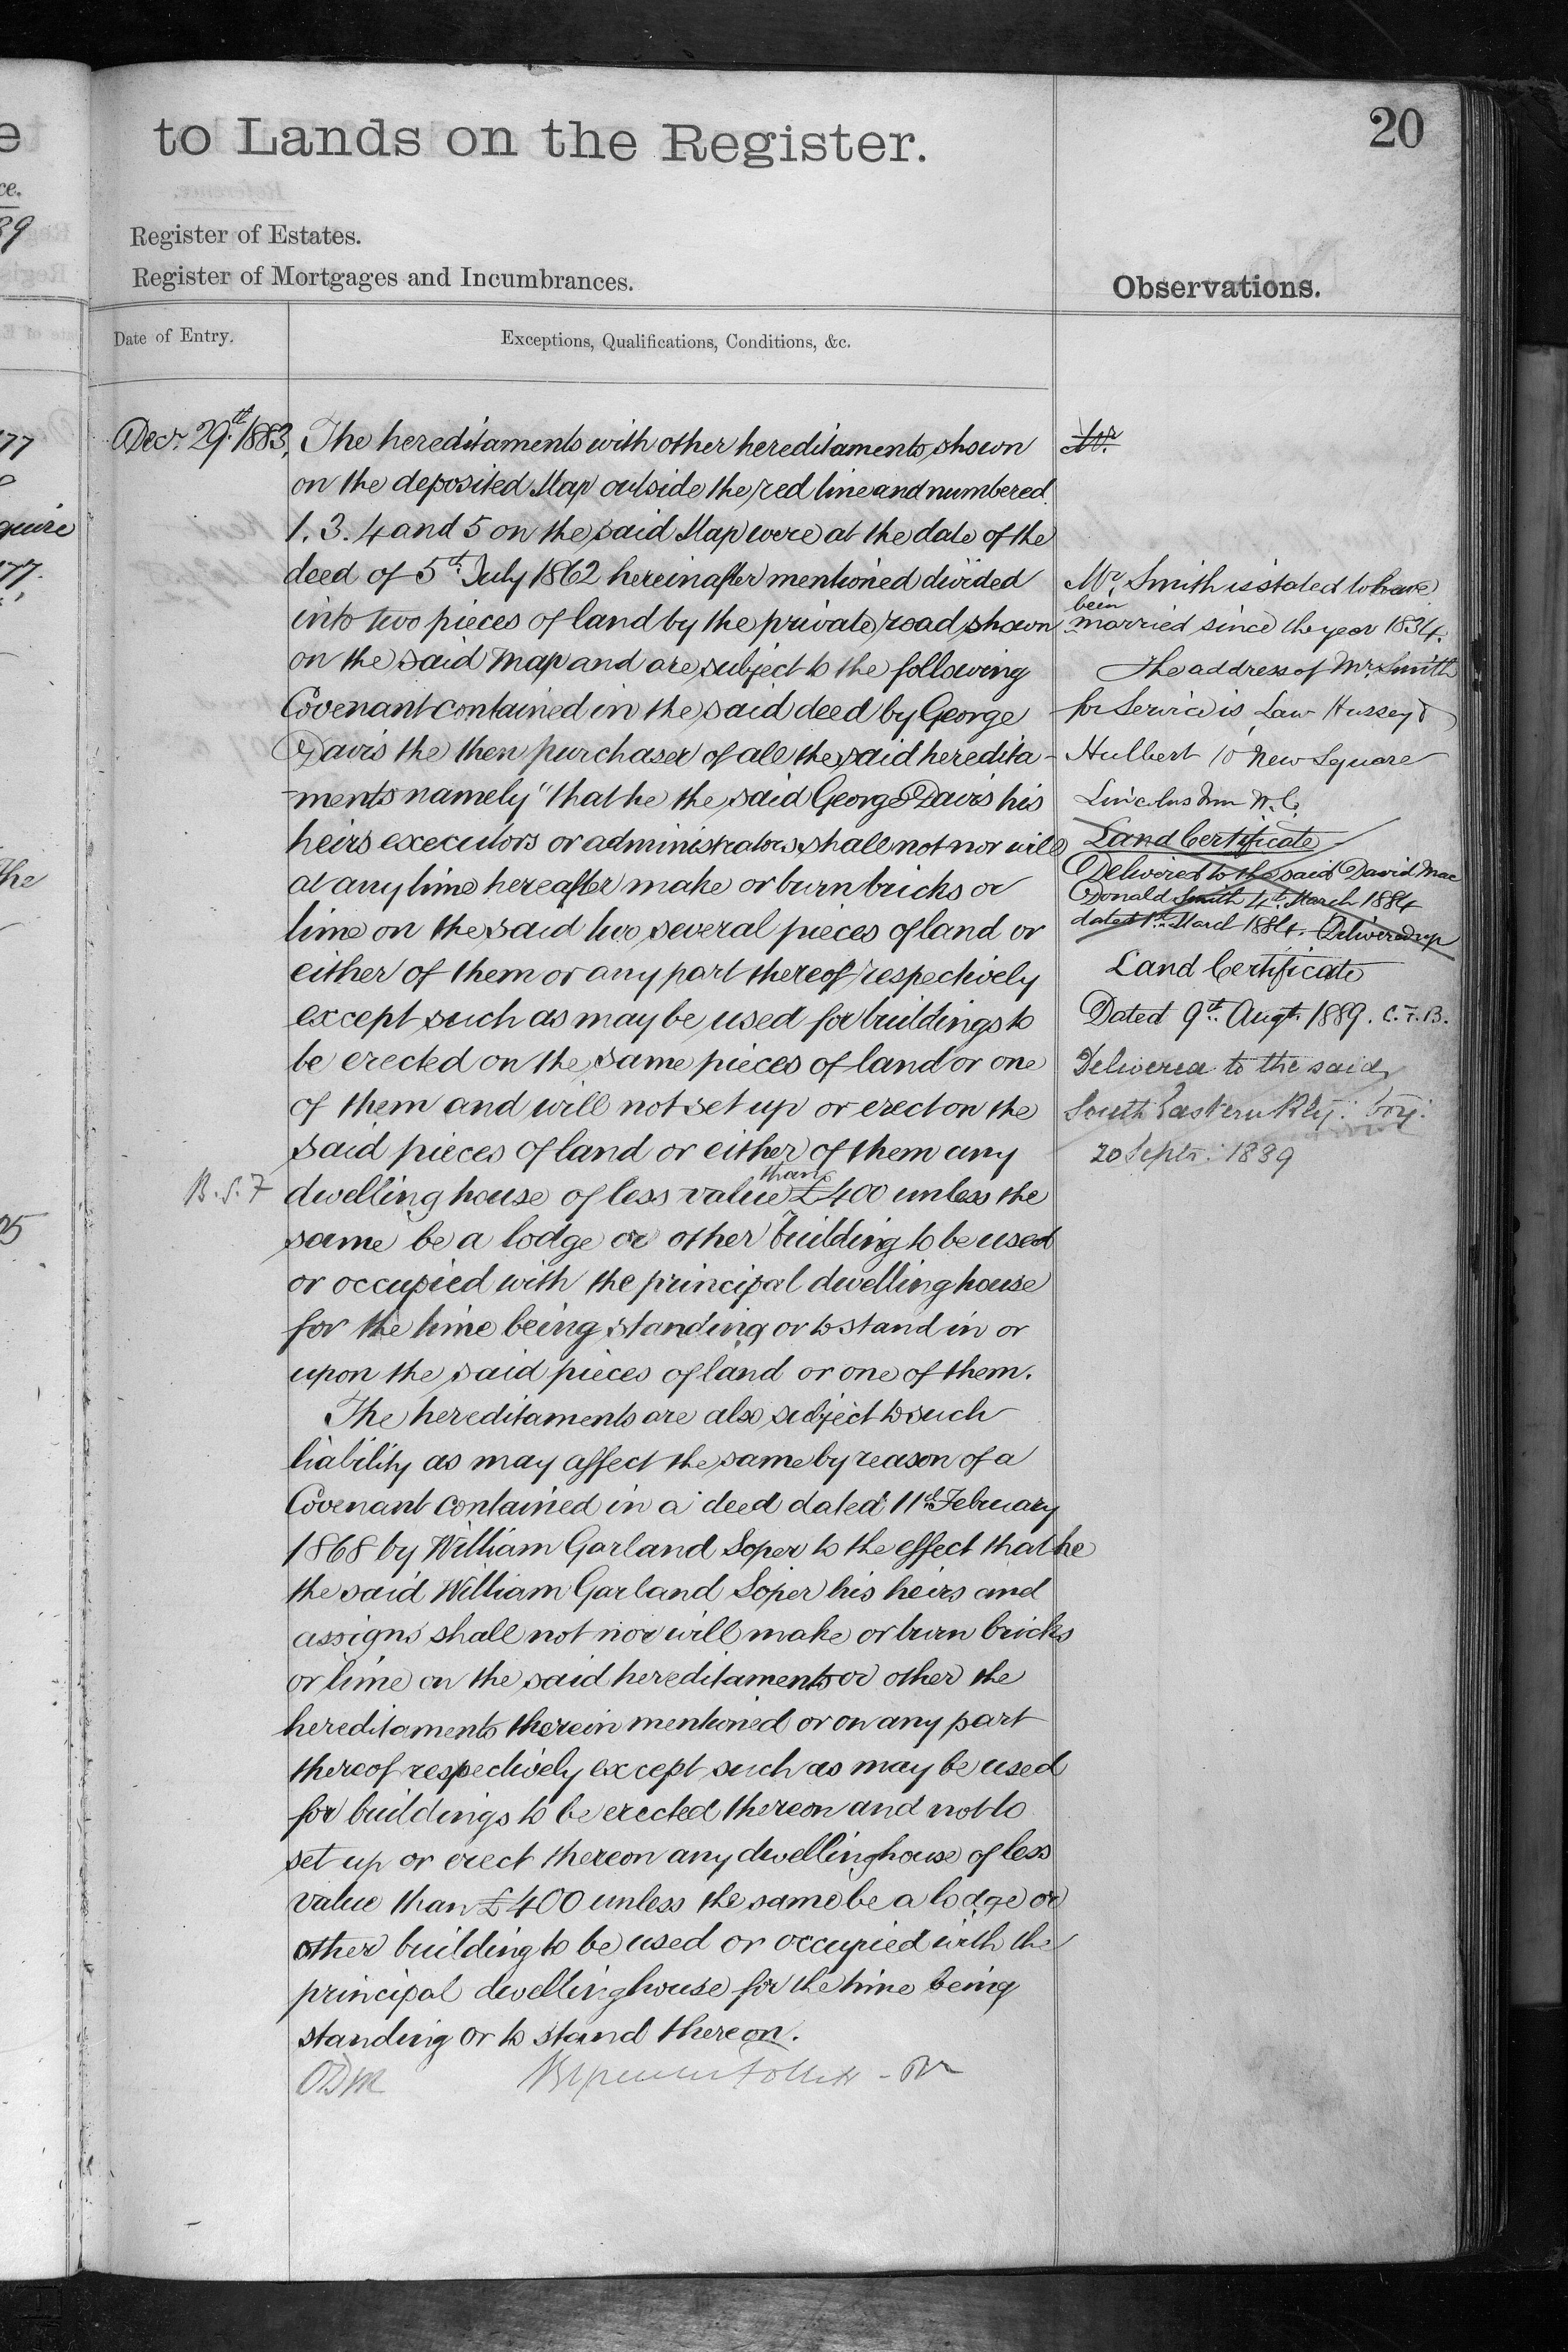 to Lands on the Register.
20
Register of Estates.
Register of Mortgages and Incumbrances.
Observations.
Date of Entry.
Exceptions, Qualifications, Conditions, &c.
Decr. 29th. 1883,
The hereditaments with other hereditaments shown
on the deposited Map outside the red line and numbered
1. 3. 4 and 5 on the said Map were at the date of the
deed of 5th. July 1862 hereinafter mentioned divided
into two pieces of land by the private road shown
on the said Map and are subject to the following
Covenant contained in the said deed by George
Davis the then purchaser of all the said heredita-
-ments namely "that he the said George Davis his
heirs executors or administrators shall not nor will
at any time hereafter make or burn bricks or
lime on the said two several pieces of land or
either of them or any part thereof respectively
except such as may be used for buildings to
be erected on the same pieces of land or one
of them and will not set up or erect on the
said pieces of land or either of them any
than
B.S.F
dwelling house of less value £400 unless the
same be a lodge or other building to be used
or occupied with the principal dwelling house
for the time being standing or to stand in or
upon the said pieces of land or one of them.
The hereditaments are also subject to such
liability as may affect the same by reason of a
Covenant contained in a deed dated 11th February
1868 by William Garland Soper to the effect that he
the said William Garland Soper his heirs and
assigns shall not nor will make or burn bricks
or lime on the said hereditaments or other the
hereditaments therein mentioned or on any part
thereof respectively except such as may be used
for buildings to be erected thereon and not to
set up or erect thereon any dwellinghouse of less
value than £400 unless the same be a lodge or
other building to be used or occupied with the
principal dwellinghouse for the time being
standing or to stand thereon.
Mr. Smith is stated to have
been
married since the year 1834.
The address of Mr. Smith
for Service is Law Hussey &
Hulbert 10 New Square
Lincolns Inn W.C.
Land Certificate
Delivered to the said David Mac
Donald Smith 4th. March 1884
dated 1st. March 1884. Delivered up
Land Certificate
Dated 9th. Augt. 1889. C.F.B.
Delivered to the said
South Eastern Rly: Coy:
20 Septr: 1889